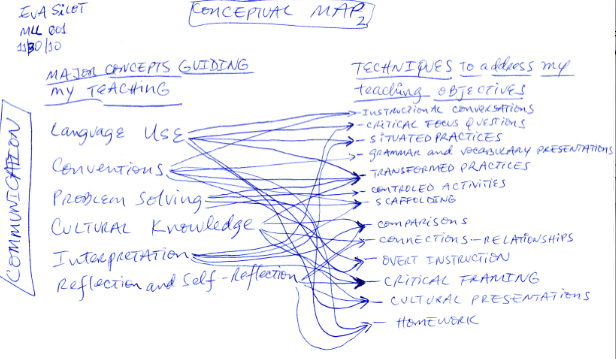 EVA SILOT
MLL 601
11/30/10
CONCEPTUAL MAP 2
COMMUNICATION
MAJOR CONCEPTS GUIDING
MY TEACHING
Language USE
Conventions
Problem Solving
CULTURAL Knowledge
Interpretation
Reflection and Self-Reflection
TECHNIQUES to address my
teaching OBJECTIVES
- INSTRUCTIONAL CONVERSATIONS
- CRITICAL FOCUS QUESTIONS
- SITUATED PRACTICES
- GRAMMAR and VOCABULARY PRESENTATIONS
- TRANSFORMED PRACTICES
- CONTROLED ACTIVITIES
- SCAFFOLDING
- COMPARISONS
- CONNECTIONS - RELATIONSHIPS
- OVERT INSTRUCTION
- CRITICAL FRAMING
- CULTURAL PRESENTATIONS
- HOMEWORK